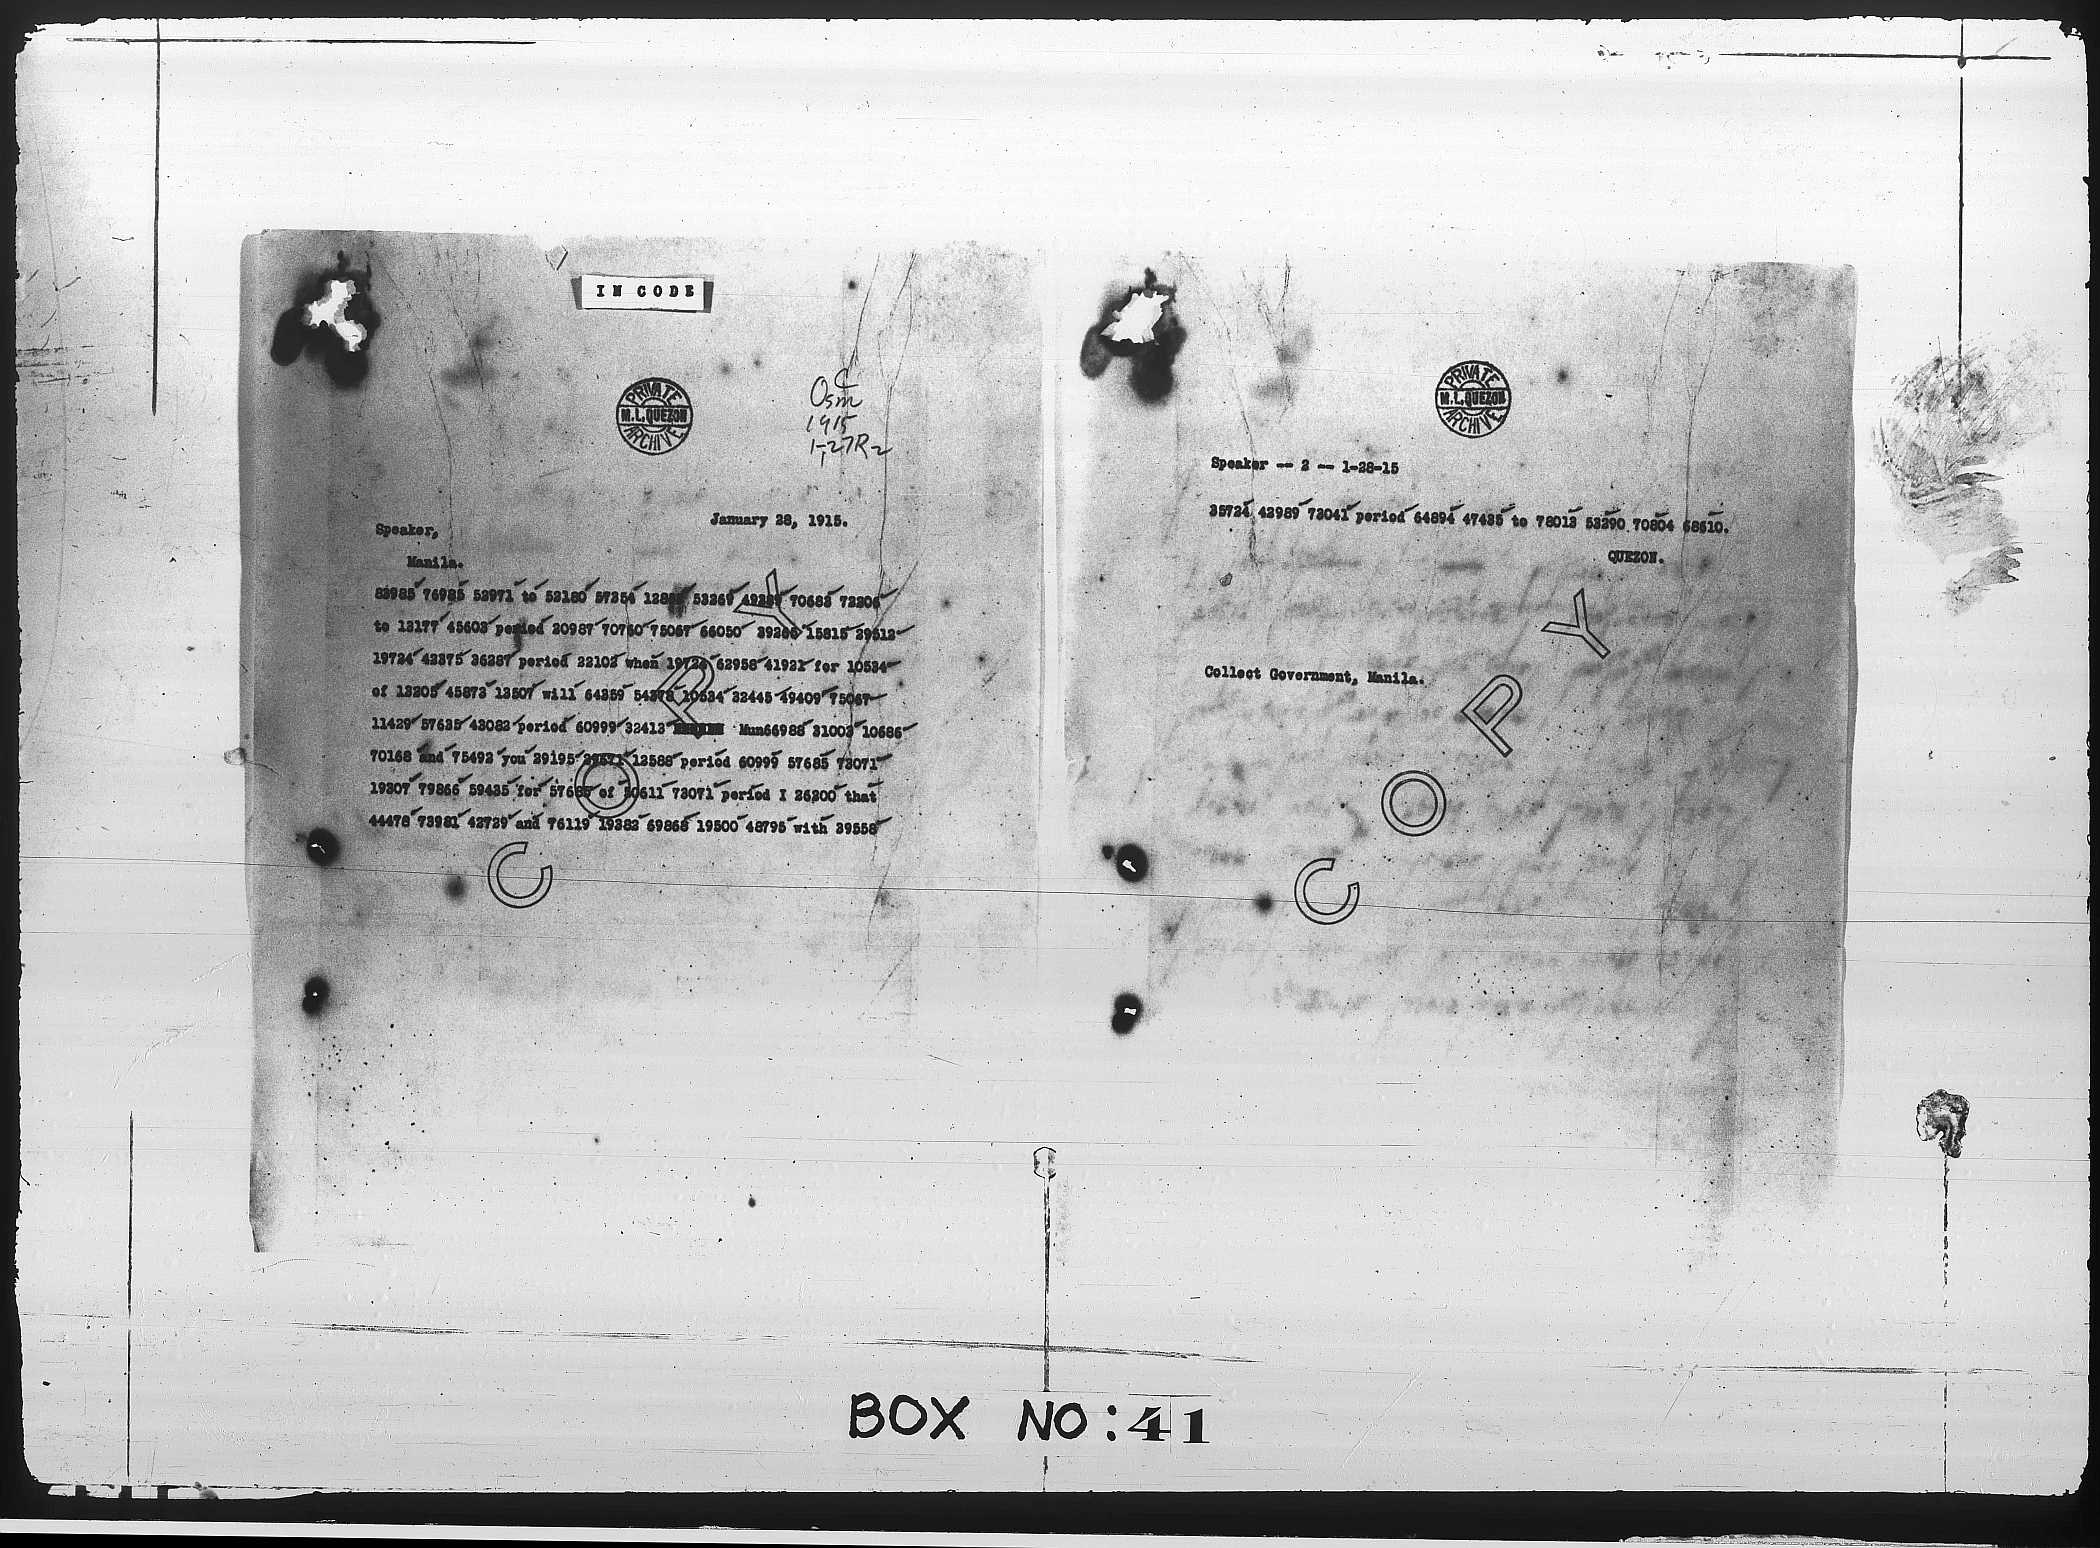 IN CODE
PRIVATE
M.L. QUEZON
ARCHIVE
C
Osm
1915
1-27R2
January 28, 1915.
Speaker,
Manila.
83985 76985 52971 to 52180 57354 53369 70683 73206
to 13177 45603 period 20987 70760 75067 66050 15815 29512
19724 42375 36287 period 22102 when 19724 62958 41921 for 10534
of 13205 45873 13507 will 64359 54378 10534 32445 49409 75067
11429 57635 43082 period 60999 32413 Mun66988 31003 10686
70168 and 75492 you 29195 13588 period 60999 57685 73071
19307 79866 59435 for 57685 of 73071 period I 26200 that
44478 73981 42729 and 76119 19382 69868 19500 48795 with 39558
COPY
PRIVATE
M.L. QUEZON
ARCHIVE
Speaker -- 2 -- 1-28-15
35724 42989 73041 period 64894 47435 to 78013 53290 70804 68610.
QUEZON.
Collect Government, Manila.
COPY
BOX NO: 41